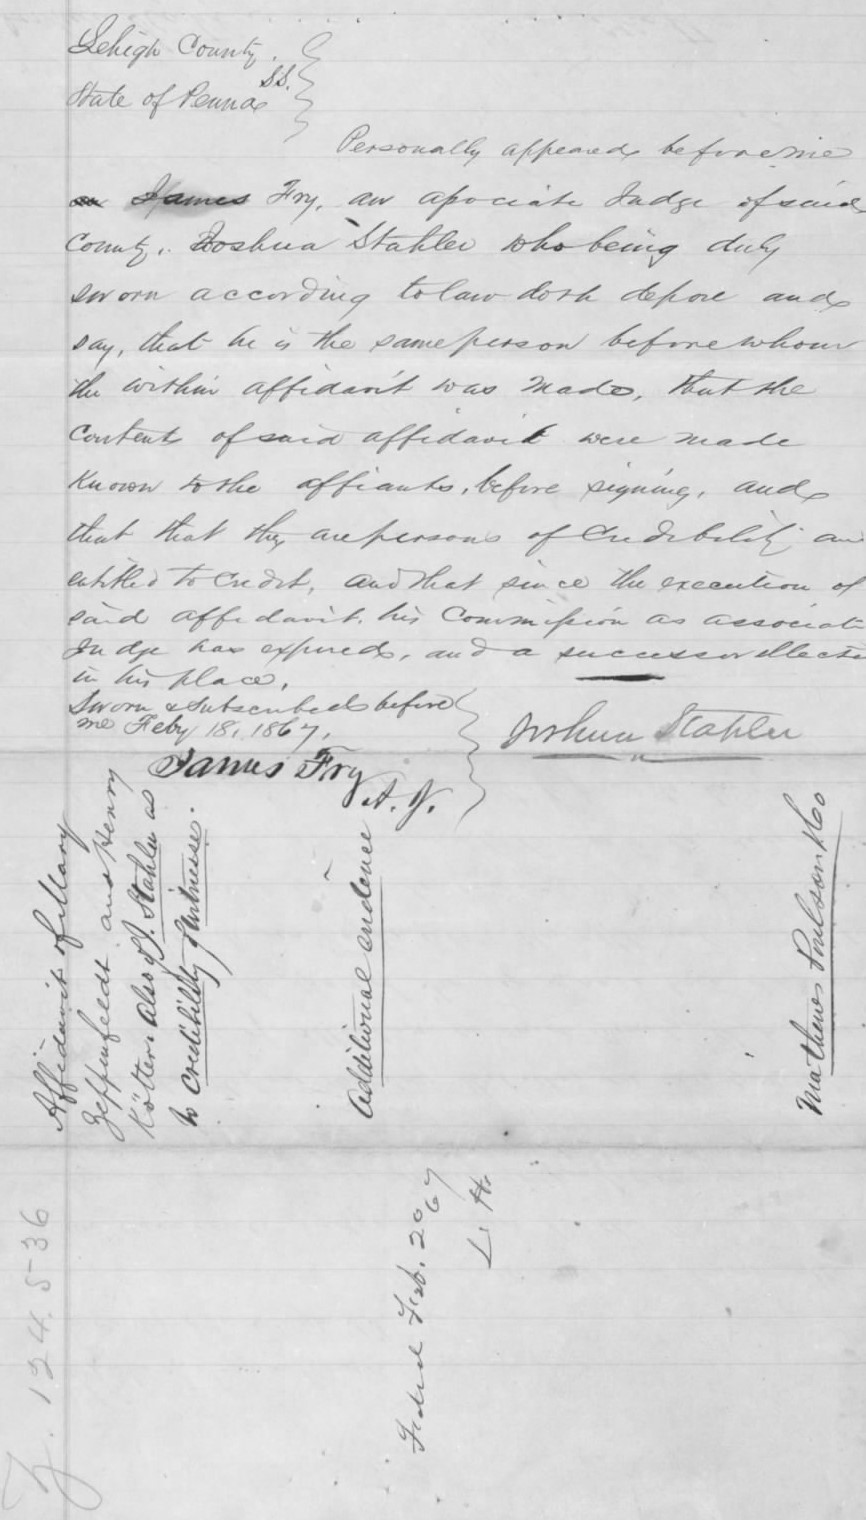 Lehigh County.
SS.
State of Penna
Personally appeared before me
James Fry, an asociate Judge of said
County, Joshua Stahler who being duly
sworn according to law doth depose and
say, that he is the same person before whom
the within affidavit was made, that the
contents of said affidavit were made
known to the affiants, before signing, and
that that they are persons of Credibility an
entitled to credit, and that since the execution of
said affidavit, his Commission as associate
Judge has expired, and a successor elected
in his place.
Sworn & Subscribed before
me Feby 18, 1867,
Joshua Stahler
James Fry
A. J.
Affidavit of Mary
and Henry
Also of J. Stahler as
to Credibility of witnesses.
Additional evidence
Mathews Poulson & Co
Feb. 20 67
L. H.
124.536